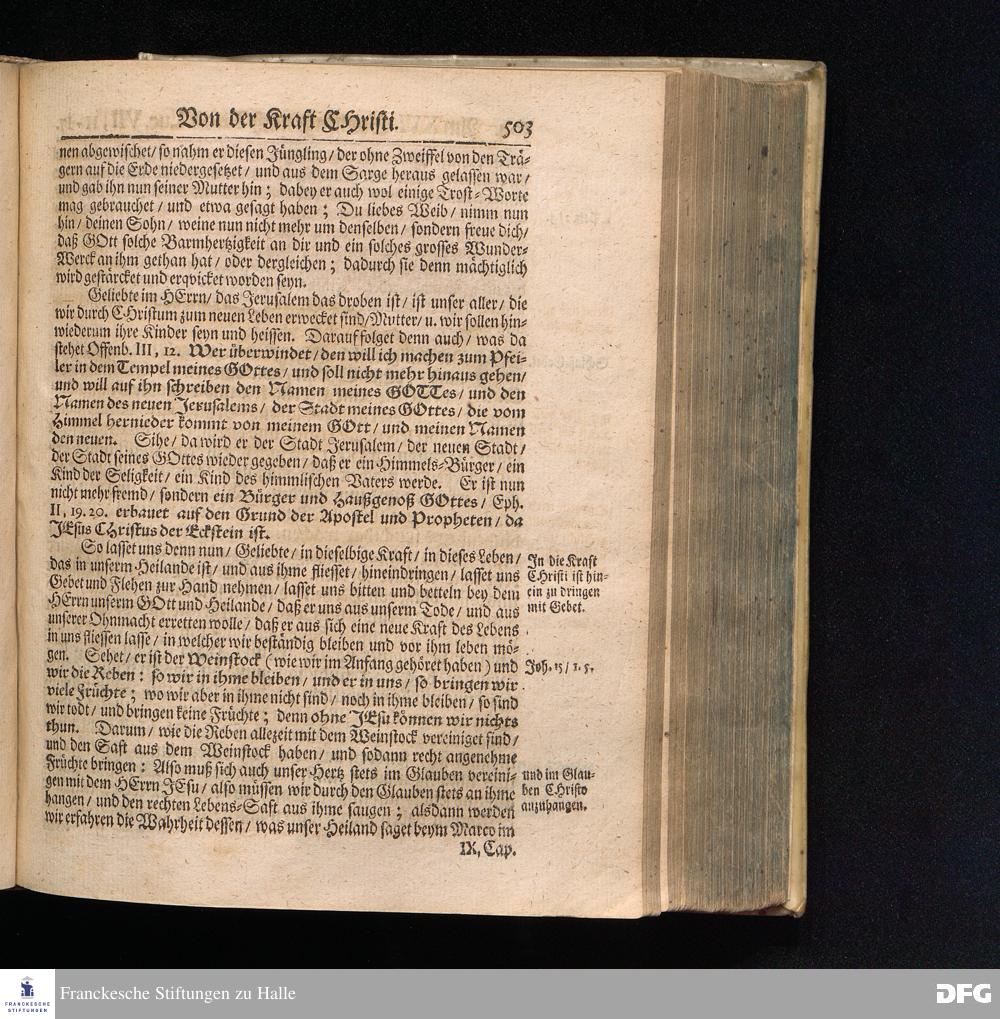 Von der Kraft CHristi. 503
nen abgewischet/ so nahm er diesen Jüngling/ der ohne Zweiffel von den Trä-
gern auf die Erde niedergesetzet/ und aus dem Sarge heraus gelassen war/
und gab ihn nun seiner Mutter hin; dabey er auch wol einige Trost-Worte
mag gebrauchet/ und etwa gesagt haben; Du liebes Weib/ nimm nun
hin/ deinen Sohn/ weine nun nicht mehr um denselben/ sondern freue dich/
daß GOtt solche Barmhertzigkeit an dir und ein solches grosses Wunder-
Werck an ihm gethan hat/ oder dergleichen; dadurch sie denn mächtiglich
wird gestärcket und erqvicket worden seyn.
Geliebte im HErrn/ das Jerusalem das droben ist/ ist unser aller/ die
wir durch CHristum zum neuen Leben erwecket sind/Mutter/ u. wir sollen hin-
wiederum ihre Kinder seyn und heissen. Darauf folget denn auch/ was da
stehet Offenb. III, 12. Wer überwindet/ den will ich machen zum Pfei-
ler in dem Tempel meines GOttes/ und soll nicht mehr hinaus gehen/
und will auf ihn schreiben den Namen meines GOTTes/ und den
Namen des neuen Jerusalems/ der Stadt meines GOttes/ die vom
Himmel hernieder kommt von meinem GOtt/ und meinen Namen
den neuen. Sihe/ da wird er der Stadt Jerusalem/ der neuen Stadt/
der Stadt seines GOttes wieder gegeben/ daß er ein Himmels-Bürger/ ein
Kind der Seligkeit/ ein Kind des himmlischen Vaters werde. Er ist nun
nicht mehr fremd/ sondern ein Bürger und Haußgenoß GOttes/ Eph.
II, 19. 20. erbauet auf den Grund der Apostel und Propheten/ da
JEsus CHristus der Eckstein ist.
So lasset uns denn nun/ Geliebte/ in dieselbige Kraft/ in dieses Leben/
das in unserm Heilande ist/ und aus ihme fliesset/ hineindringen/ lasset uns
Gebet und Flehen zur Hand nehmen/ lasset uns bitten und betteln bey dem
HErrn unserm GOtt und Heilande/ daß er uns aus unserm Tode/ und aus
unserer Ohnmacht erretten wolle/ daß er aus sich eine neue Kraft des Lebens
in uns fliessen lasse/ in welcher wir beständig bleiben und vor ihm leben mö-
gen. Sehet/ er ist der Weinstock (wie wir im Anfang gehöret haben) und
wir die Reben: so wir in ihme bleiben/ und er in uns/ so bringen wir
viele Früchte; wo wir aber in ihme nicht sind/ noch in ihme bleiben/ so sind
wir todt/ und bringen keine Früchte; denn ohne JEsu können wir nichts
thun. Darum/ wie die Reben allezeit mit dem Weinstock vereiniget sind/
und den Saft aus dem Weinstock haben/ und sodann recht angenehme
Früchte bringen: Also muß sich auch unser Hertz stets im Glauben vereini-
gen mit dem HErrn JEsu/ also müssen wir durch den Glauben stets an ihme
hangen/ und den rechten Lebens-Saft aus ihme saugen; alsdann werden
wir erfahren die Wahrheit dessen/ was unser Heiland saget beym Marco im
IX, Cap.
In die Kraft
CHristi ist hin-
ein zu dringen
mit Gebet.
Joh. 15/ 1. 5.
und im Glau-
ben CHristo
anzuhangen.
FRANCKESCHE
STIFTUNGEN
Franckesche Stiftungen zu Halle
DFG